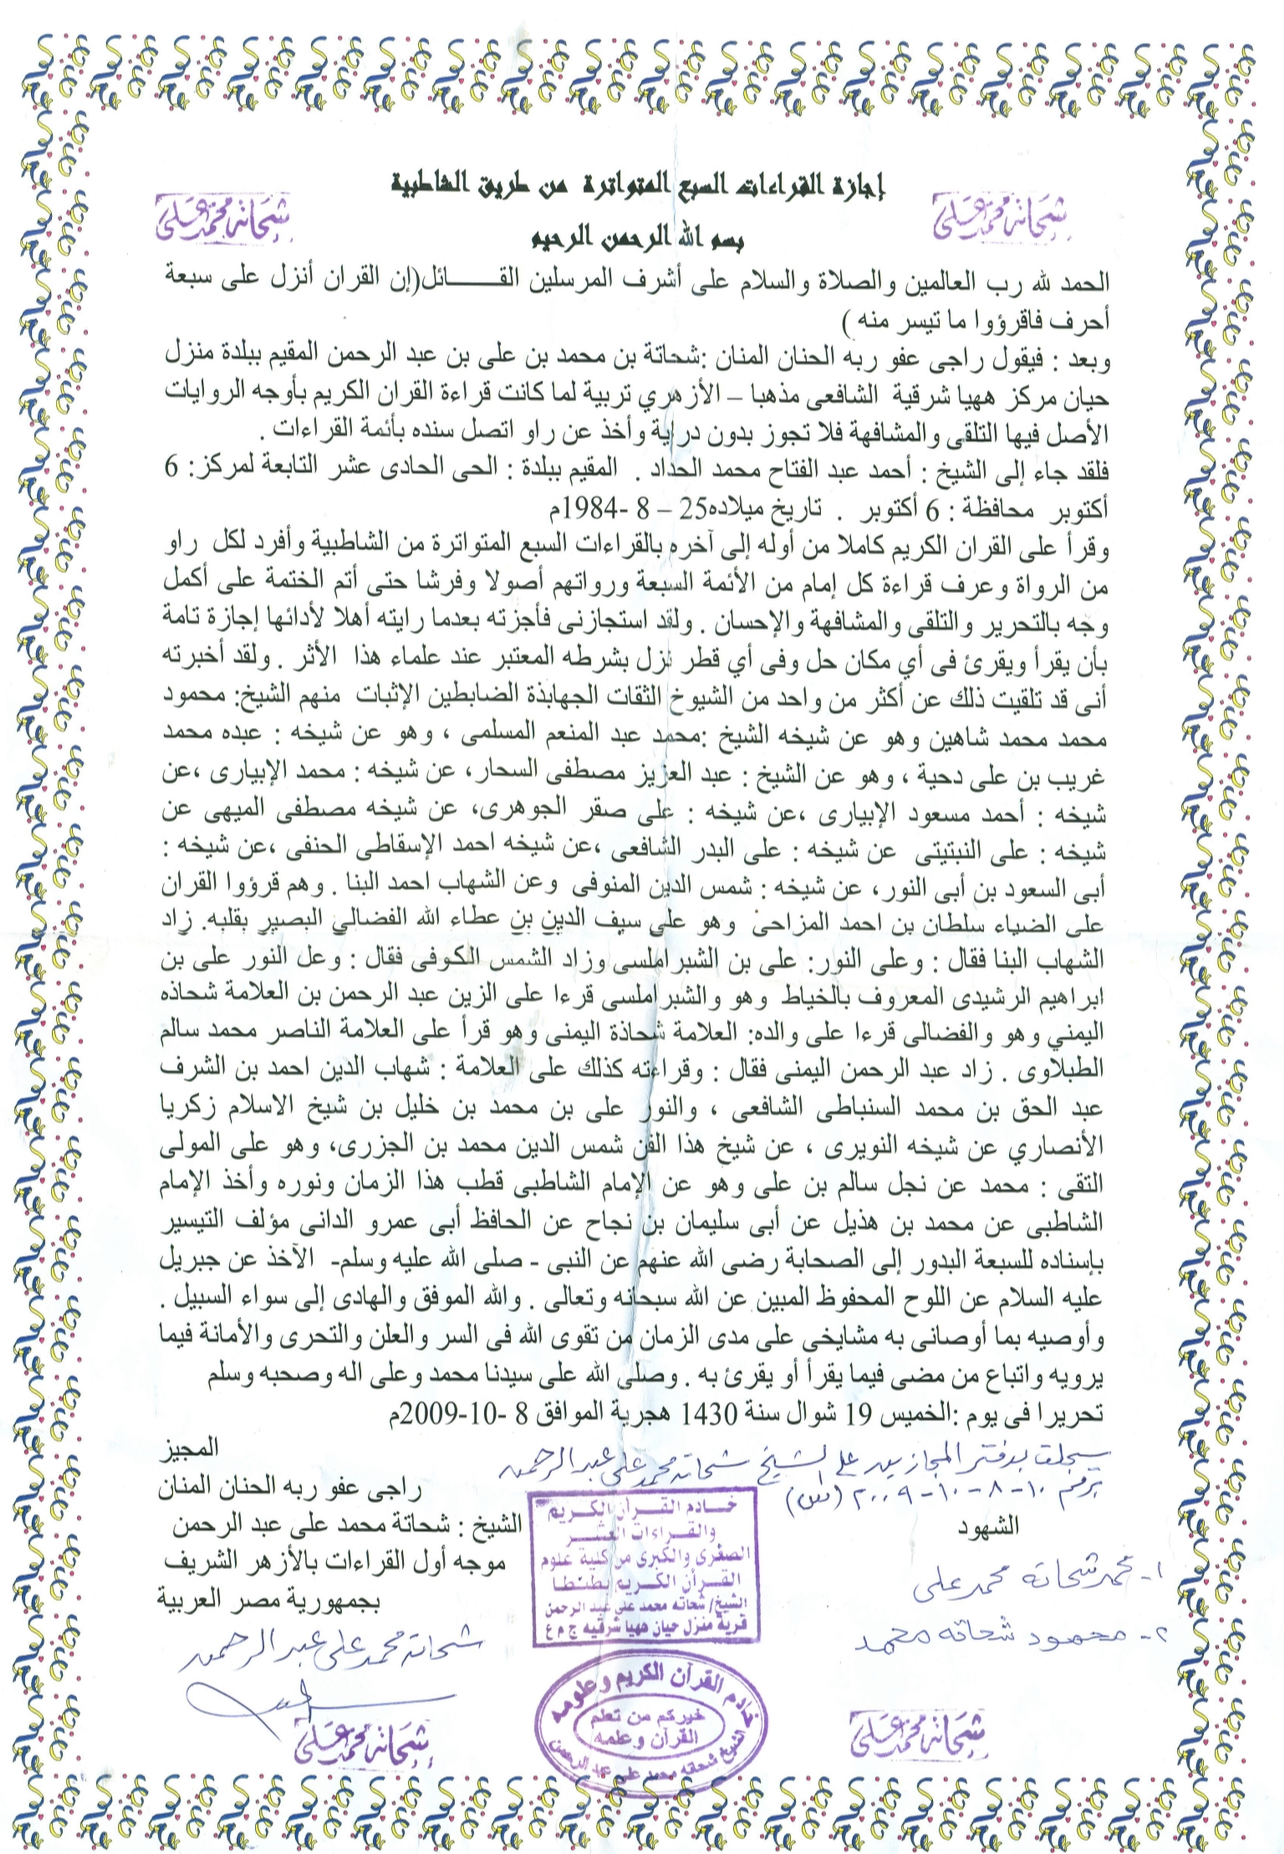 إجازة القراءات السبع المتواترة من طريق الشاطبية
شحاته محمد على
شحاته محمد على
بسم الله الرحمن الرحيم
الحمد لله رب العالمين والصلاة والسلام على أشرف المرسلين القـــــائل(إن القران أنزل على سبعة
أحرف فاقرؤوا ما تيسر منه )
وبعد : فيقول راجى عفو ربه الحنان المنان :شحاتة بن محمد بن على بن عبد الرحمن المقيم ببلدة منزل
حيان مركز ههيا شرقية الشافعى مذهبا – الأزهري تربية لما كانت قراءة القران الكريم بأوجه الروايات
الأصل فيها التلقى والمشافهة فلا تجوز بدون دراية وأخذ عن راو اتصل سنده بأئمة القراءات .
فلقد جاء إلى الشيخ : أحمد عبد الفتاح محمد الحداد . المقيم ببلدة : الحى الحادى عشر التابعة لمركز: 6
أكتوبر محافظة : 6 أكتوبر . تاريخ ميلاده25 – 8 -1984م
وقرأ على القران الكريم كاملا من أوله إلى آخره بالقراءات السبع المتواترة من الشاطبية وأفرد لكل راو
من الرواة وعرف قراءة كل إمام من الأئمة السبعة ورواتهم أصولا وفرشا حتى أتم الختمة على أكمل
وجه بالتحرير والتلقى والمشافهة والإحسان . ولقد استجازنى فأجزته بعدما رايته أهلا لأدائها إجازة تامة
بأن يقرأ ويقرئ فى أي مكان حل وفى أي قطر نزل بشرطه المعتبر عند علماء هذا الأثر . ولقد أخبرته
أنى قد تلقيت ذلك عن أكثر من واحد من الشيوخ الثقات الجهابذة الضابطين الإثبات منهم الشيخ: محمود
محمد محمد شاهين وهو عن شيخه الشيخ :محمد عبد المنعم المسلمى ، وهو عن شيخه : عبده محمد
غريب بن على دحية ، وهو عن الشيخ : عبد العزيز مصطفى السحار، عن شيخه : محمد الإبيارى ،عن
شيخه : أحمد مسعود الإبيارى ،عن شيخه : على صقر الجوهرى، عن شيخه مصطفى الميهى عن
شيخه : على النبتيتى عن شيخه : على البدر الشافعى ،عن شيخه احمد الإسقاطى الحنفى ،عن شيخه :
أبى السعود بن أبى النور، عن شيخه : شمس الدين المنوفى وعن الشهاب احمد البنا . وهم قرؤوا القران
على الضياء سلطان بن احمد المزاحى وهو على سيف الدين بن عطاء الله الفضالي البصير بقلبه. زاد
الشهاب البنا فقال : وعلى النور: على بن الشبراملسى وزاد الشمس الكوفى فقال : وعل النور على بن
ابراهيم الرشيدى المعروف بالخياط وهو والشبراملسى قرءا على الزين عبد الرحمن بن العلامة شحاذه
اليمني وهو والفضالى قرءا على والده: العلامة شحاذة اليمنى وهو قرأ على العلامة الناصر محمد سالم
الطبلاوى . زاد عبد الرحمن اليمنى فقال : وقراءته كذلك على العلامة : شهاب الدين احمد بن الشرف
عبد الحق بن محمد السنباطى الشافعى ، والنور على بن محمد بن خليل بن شيخ الاسلام زكريا
الأنصاري عن شيخه النويرى ، عن شيخ هذا الفن شمس الدين محمد بن الجزرى، وهو على المولى
التقى : محمد عن نجل سالم بن على وهو عن الإمام الشاطبى قطب هذا الزمان ونوره وأخذ الإمام
الشاطبى عن محمد بن هذيل عن أبى سليمان بن نجاح عن الحافظ أبى عمرو الدانى مؤلف التيسير
بإسناده للسبعة البدور إلى الصحابة رضى الله عنهم عن النبى - صلى الله عليه وسلم- الآخذ عن جبريل
عليه السلام عن اللوح المحفوظ المبين عن الله سبحانه وتعالى . والله الموفق والهادى إلى سواء السبيل .
وأوصيه بما أوصانى به مشايخى على مدى الزمان من تقوى الله فى السر والعلن والتحرى والأمانة فيما
يرويه واتباع من مضى فيما يقرأ أو يقرئ به . وصلى الله على سيدنا محمد وعلى اله وصحبه وسلم
تحريرا فى يوم :الخميس 19 شوال سنة 1430 هجرية الموافق 8 -10-2009م
سجلت بدفتر المجازين على الشيخ شحاته محمد على عبد الرحمن
برقم ١٠-٨-١٠-٢٠٠٩ (س)
الشهود
١- محمد شحاته محمد على
٢- محمود شحاته محمد
المجيز
راجى عفو ربه الحنان المنان
الشيخ : شحاتة محمد على عبد الرحمن
موجه أول القراءات بالأزهر الشريف
بجمهورية مصر العربية
شحاته محمد على عبد الرحمن
خادم القرآن الكريم
والقراءات العشر
الصغرى والكبرى من كلية علوم
القرآن الكريم بطنطا
الشيخ/ شحاته محمد على عبد الرحمن
قرية منزل حيان ههيا شرقيه ج م ع
خادم القرآن الكريم وعلومه
خيركم من تعلم
القرآن وعلمه
الشيخ شحاته محمد على عبد الرحمن
شحاته محمد على
شحاته محمد على